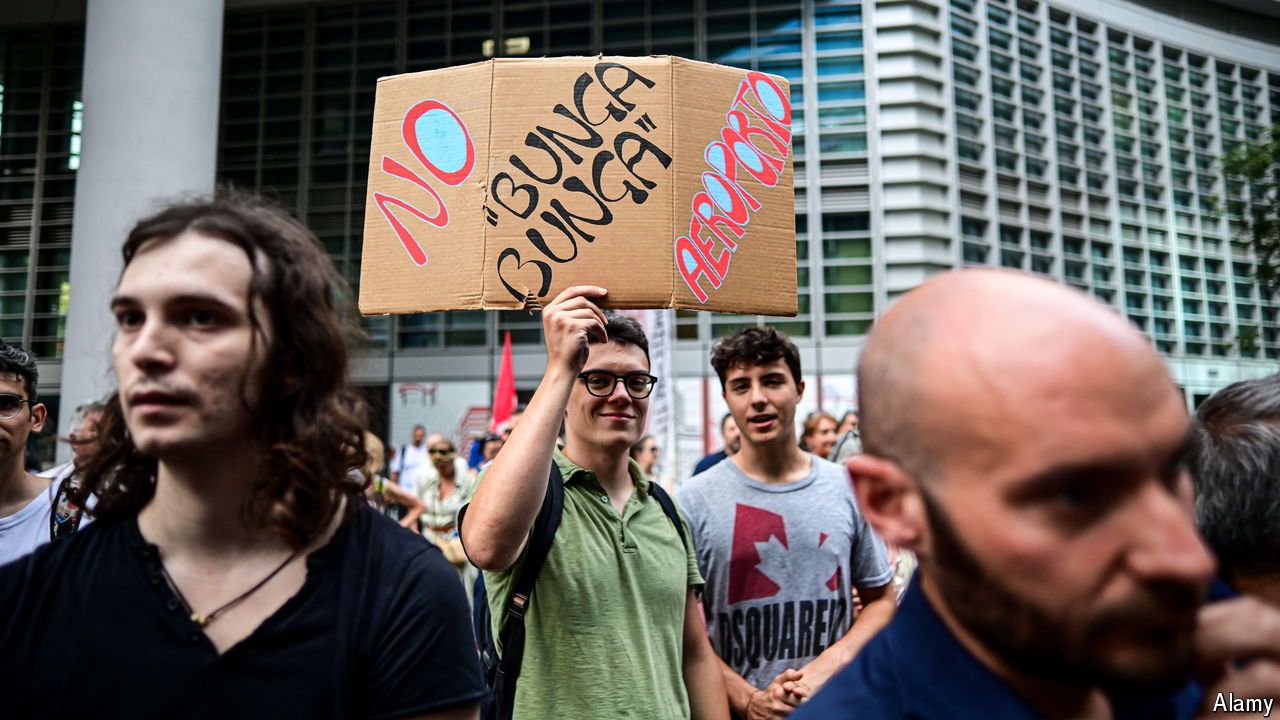 NO
"BUNGA
BUNGA"
AEROPORTO
DSQUARED
Alamy